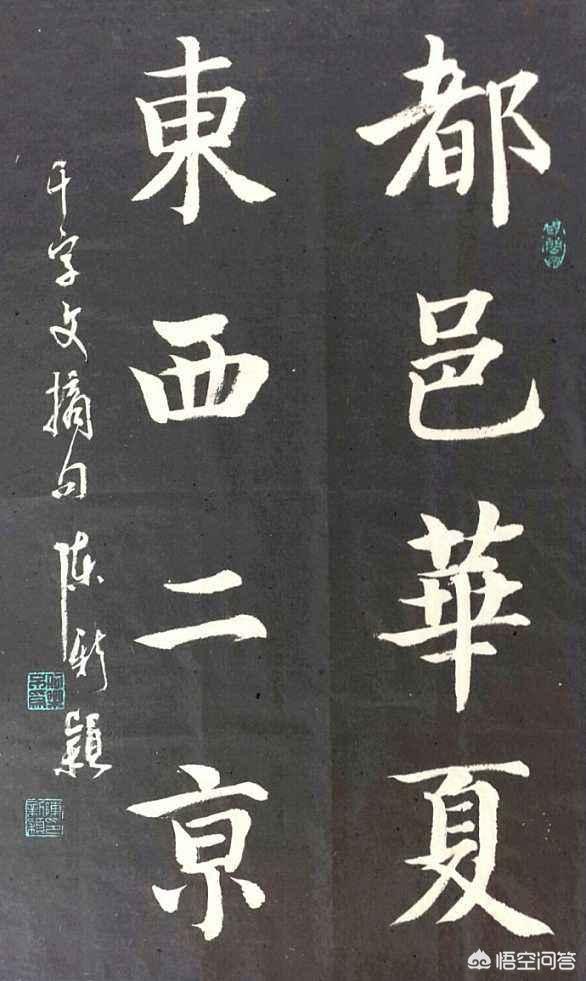 都邑華夏
東西二京
千字文摘句 陈新颖
悟空问答